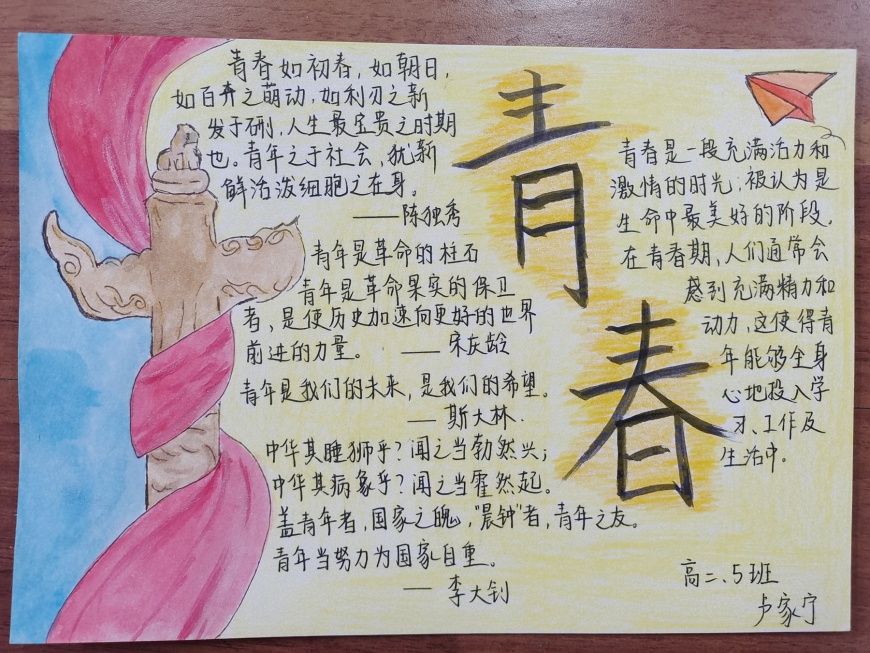 青春如初春，如朝日，
如百卉之萌动，如利刃之新
发于硎，人生最宝贵之时期
也。青年之于社会，犹新
鲜活泼细胞之在身。
——陈独秀
青年是革命的柱石
青年是革命果实的保卫
者，是使历史加速向更好的世界
前进的力量。 ——宋庆龄
青年是我们的未来，是我们的希望。
——斯大林.
中华其睡狮乎？闻之当勃然兴；
中华其病象乎？闻之当霍然起。
盖青年者，国家之魄，“晨钟”者，青年之友。
青年当努力为国家自重。
——李大钊
青
春
青春是一段充满活力和
激情的时光；被认为是
生命中最美好的阶段。
在青春期，人们通常会
感到充满精力和
动力，这使得青
年能够全身
心地投入学
习、工作及
生活中。
高二、5班
卢家宁